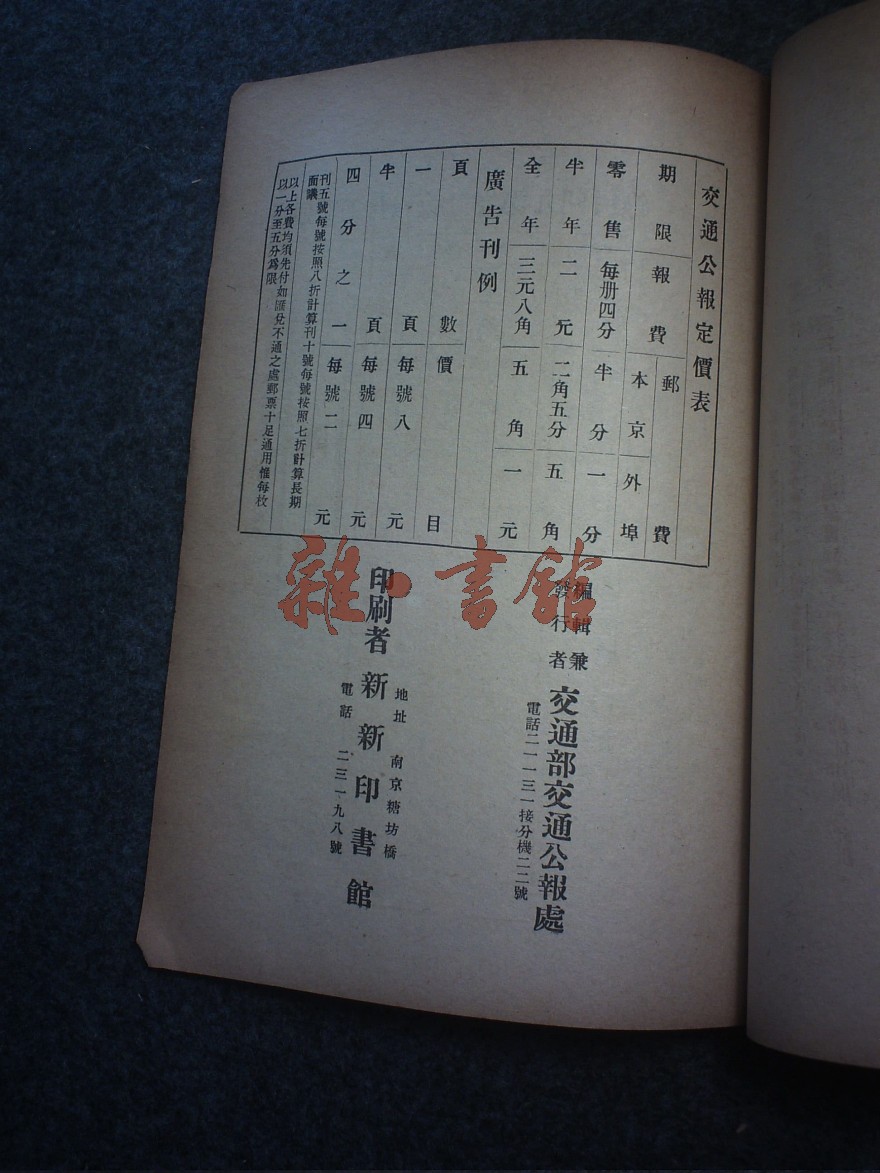 交通公報定價表
期限 報費 郵費
本京 外埠
零售 每册四分 半分 一分
半年 二元 二角五分 五角
全年 三元八角 五角 一元
廣告刊例
頁數 價目
一頁 每號八元
半頁 每號四元
四分之一 每號二元
刊五號每號按照八折計算刊十號每號按照七折計算長期
面議
以上各費均須先付如匯兌不通之處郵票十足通用惟每枚
以一分至五分爲限
編輯兼
發行者
交通部交通公報處
電話二一一三一接分機二二號
地址 南京糖坊橋
印刷者 新新印書館
電話 二三一九八號
雜·書館